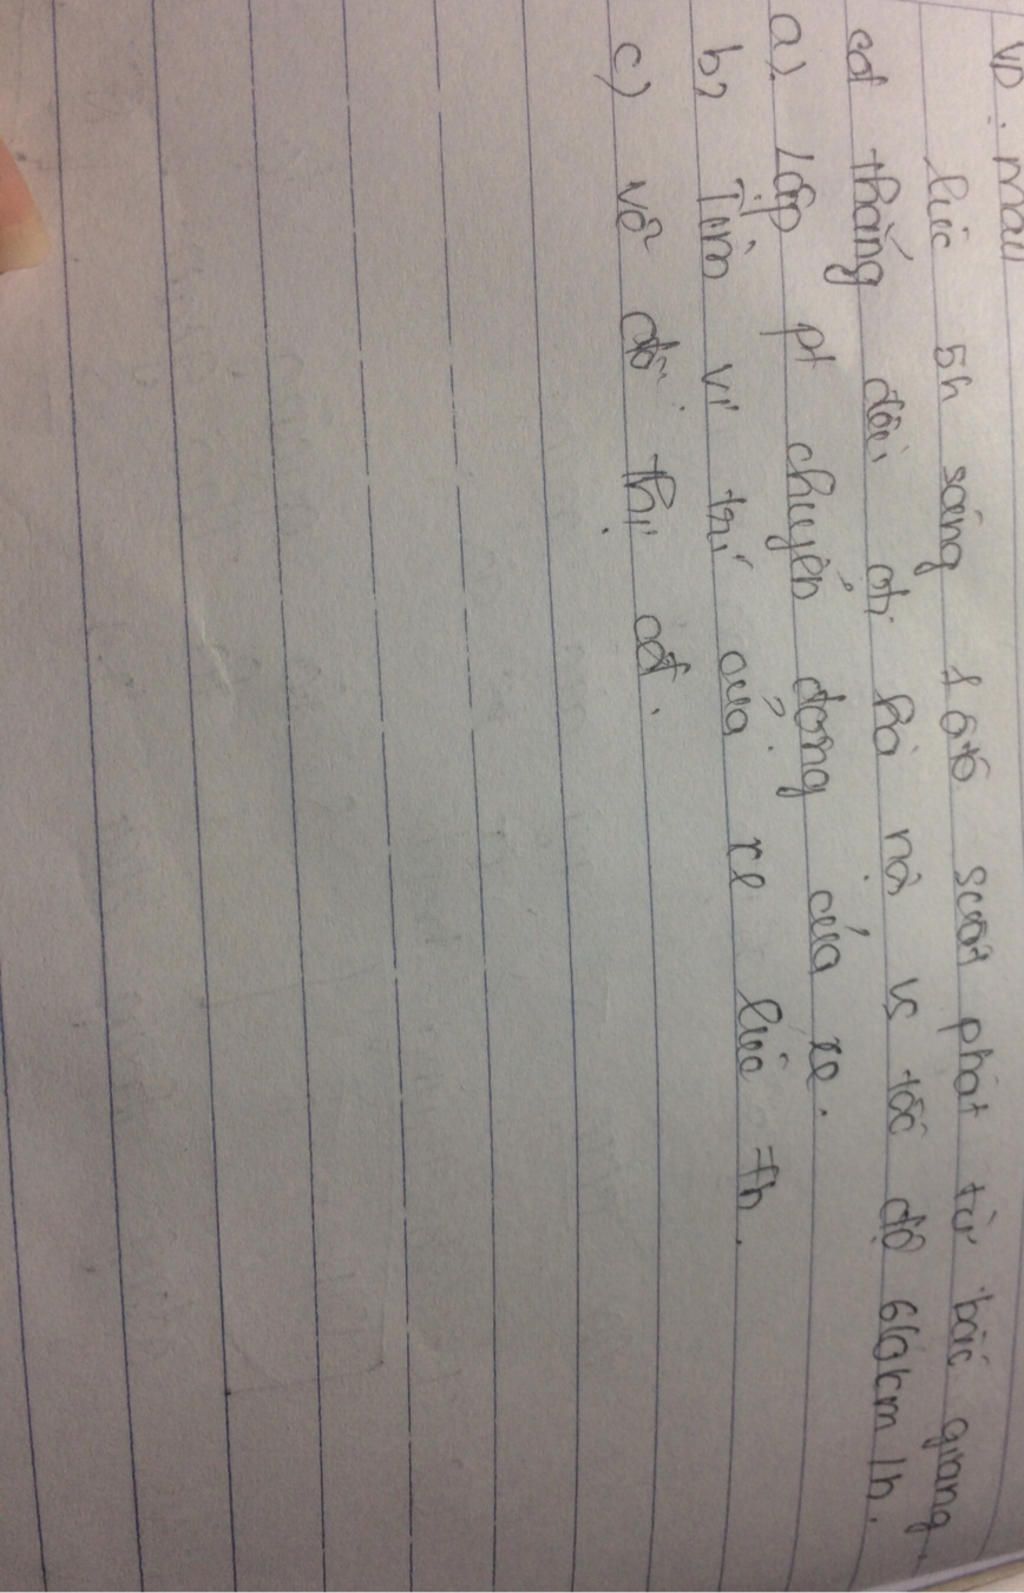 VD: mẫu
lúc 5h sáng 1 ôtô xuất phát từ bắc giang
cđ thẳng đều đi hà nội vs tốc độ 60km/h.
a). Lập pt chuyển động của xe.
b, Tìm vị trí của xe lúc 7h.
c) vẽ đồ thị cđ.